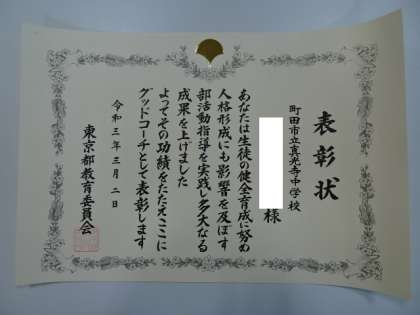 表彰状
町田市立真光寺中学校
様
あなたは生徒の健全育成に努め
人格形成にも影響を及ぼす
部活動指導を実践し多大なる
成果を上げました
よってその功績をたたえここに
グッドコーチとして表彰します
令和三年三月二日
東京都教育委員会